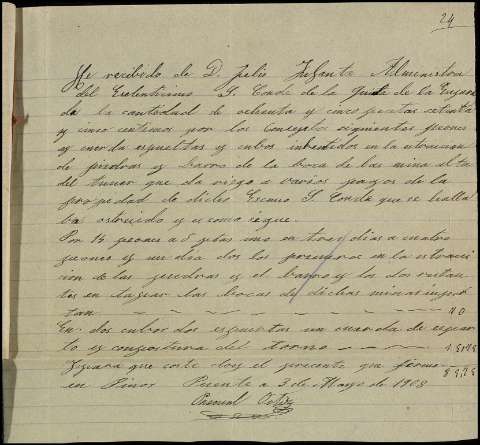 24
He recibido de D. Julio Infante Alministrador
del Exelentisimo S. Conde de la
da la cantidad de ochenta y cinco pesetas setenta
y cinco centimos por los Conceptos siguientes peones
y cuerda espuertas y cubos inbertidos en la estracion
de piedras y barro de la boca de las mina alta
del tunar que da riego a varios pagos de la
propiedad de dicho Escmo S. Conde que se halla
ba ostruido y es como sigue.
Por 14 peones a 5 ptas uno en tres dias a cuatro
peones y un dia dos los primeros en la estraci
cion de las piedras y el barro y los dos restan
tes en tapar las bocas de dichas minas inpor
tan 70
En dos cubos dos espuertas una cuerda de espar
to y conpostura del torno 15,75
Y para que coste doy el presente que firmo 85,75
en Pinos Puente a 3 de Mayo de 1908
Pascual